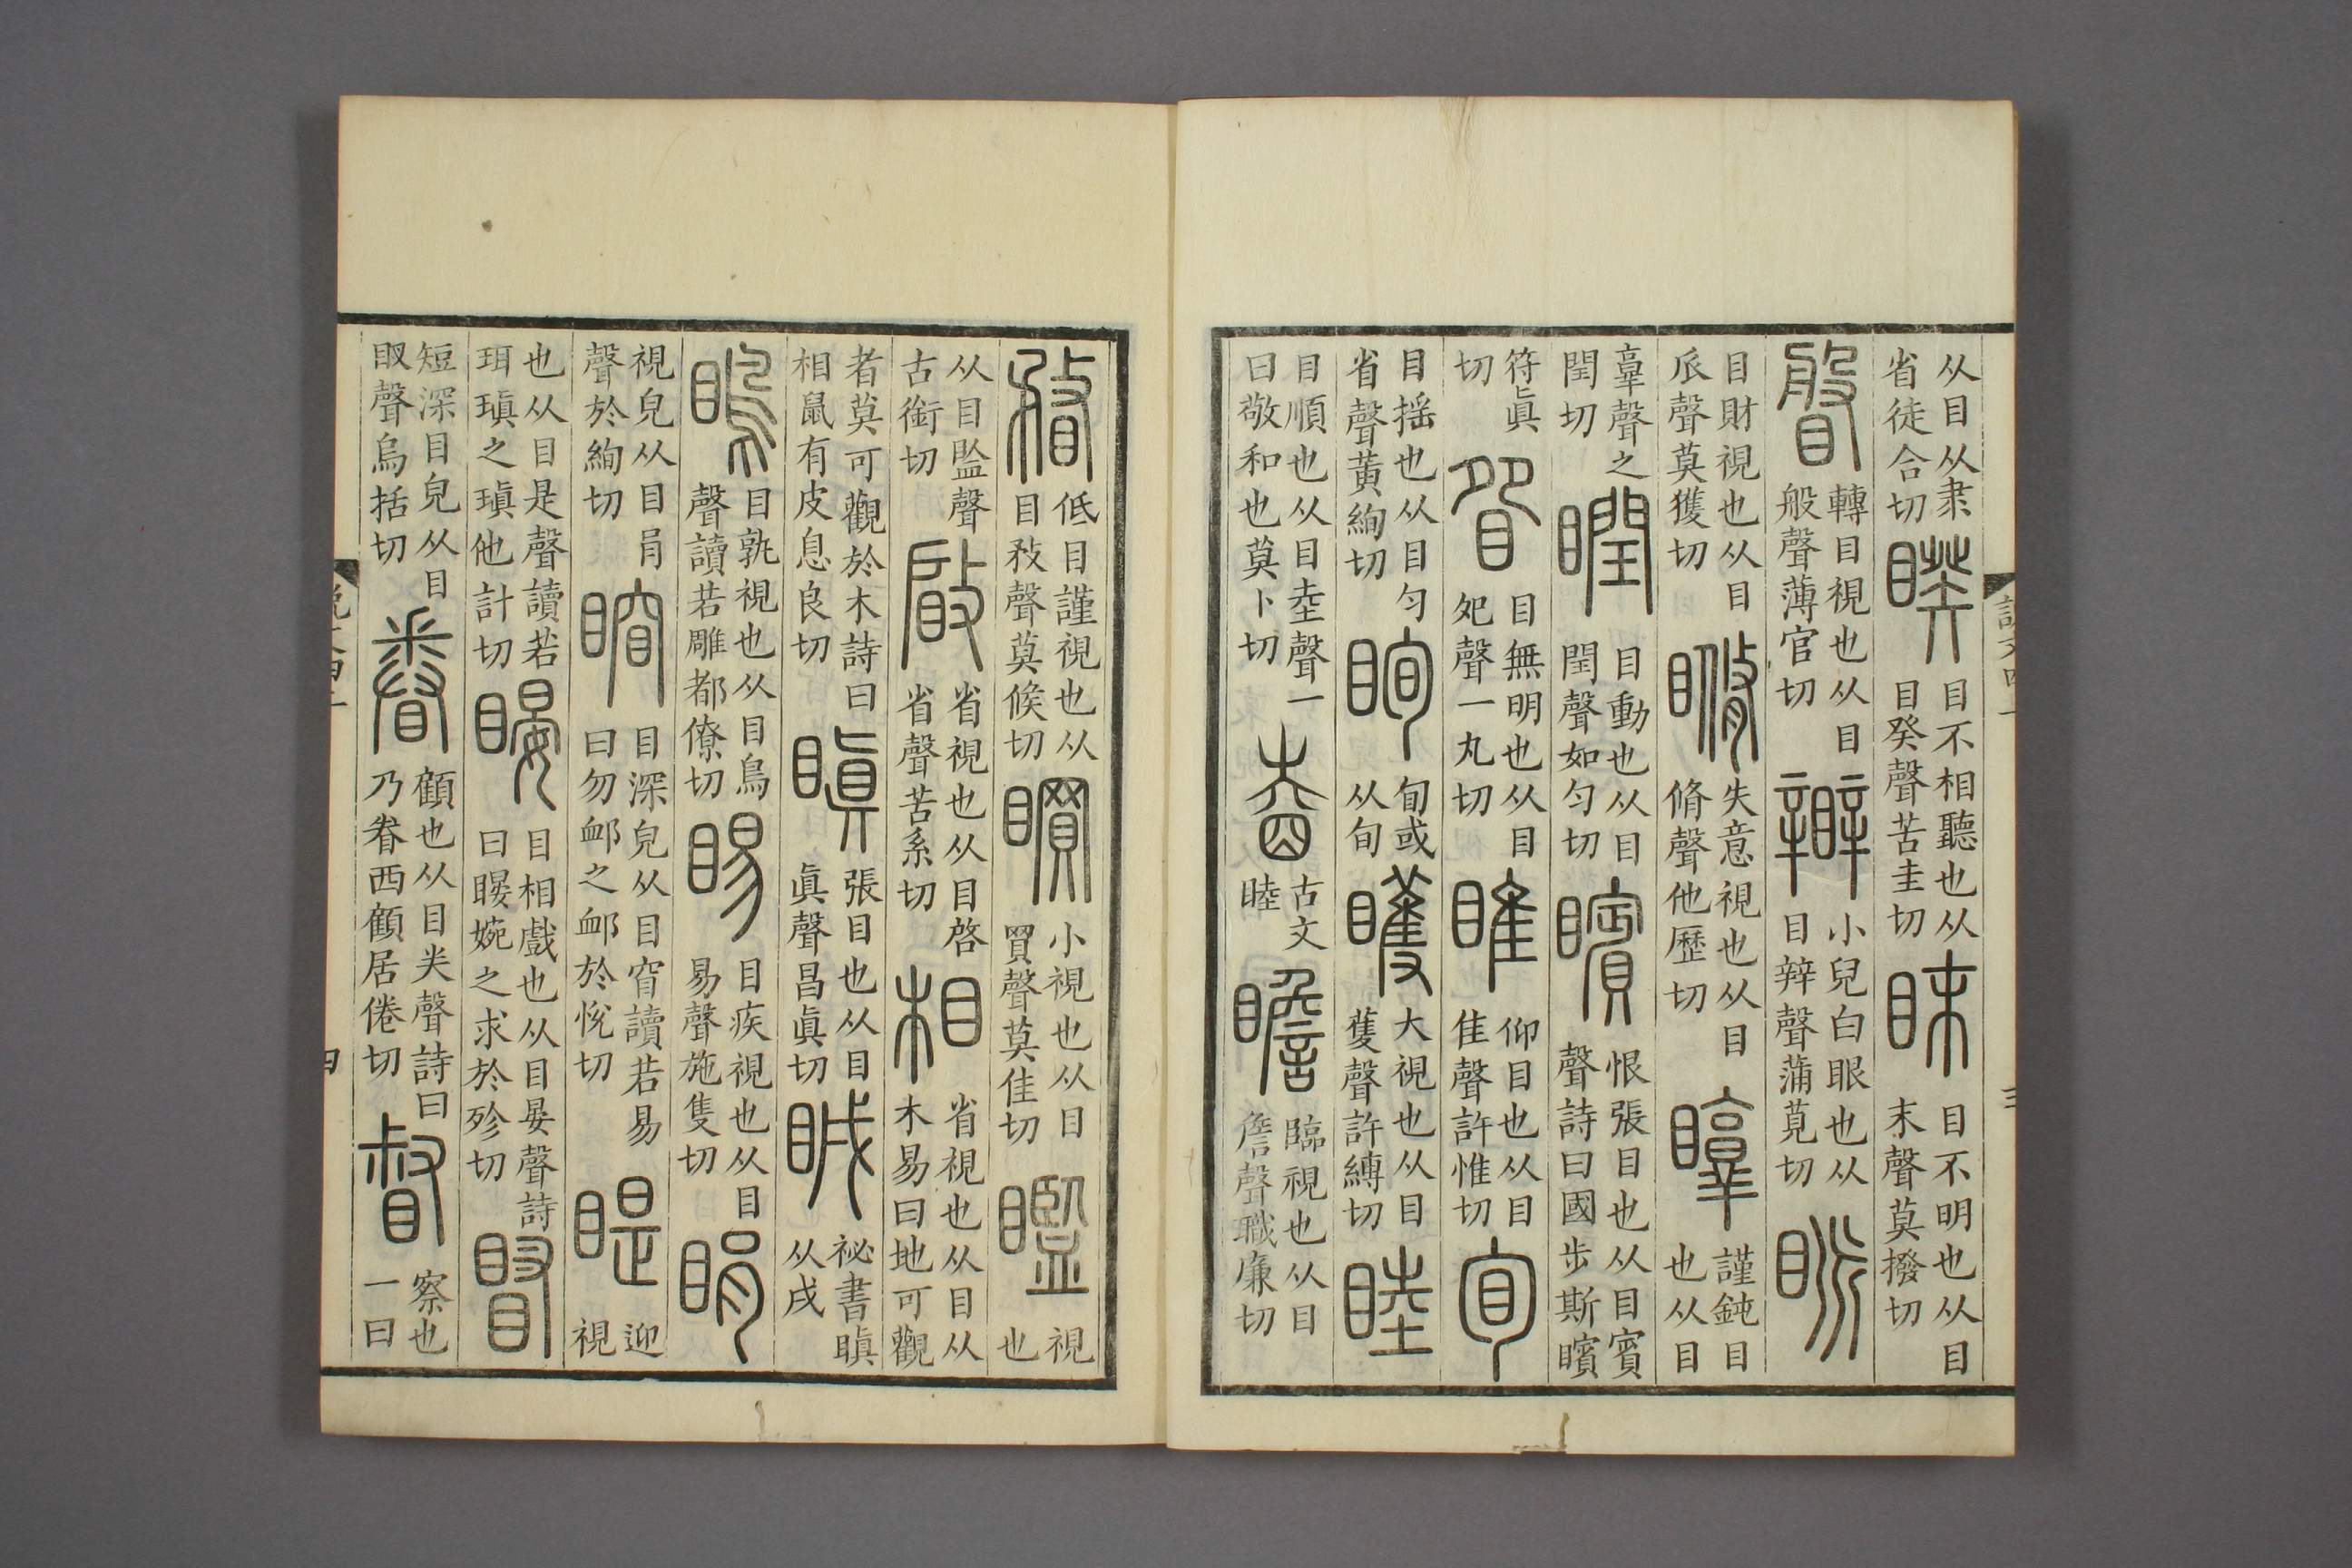 从目从隶省徒合切 睽 目不相聽也从目癸聲苦圭切 眜 目不明也从目末聲莫撥切
䁂 轉目視也从目般聲薄官切 小兒白眼也从目辡聲蒲莧切 眽
目財視也从目𠂢聲莫獲切 失意視也从目脩聲他歷切 謹鈍目也从目
𦎫聲之閏切 瞤 目動也从目閏聲如勻切 矉 恨張目也从目賓聲詩曰國步斯矉
符眞切 眢 目無明也从目夗聲一丸切 睢 仰目也从目隹聲許惟切 旬
目搖也从目勻省聲黃絢切 眴 旬或从旬 矆 大視也从目蒦聲許縛切 睦
目順也从目坴聲一曰敬和也莫卜切 古文睦 瞻 臨視也从目詹聲職廉切
瞀 低目謹視也从目敄聲莫候切 䁲 小視也从目買聲莫佳切 視也
从目監聲古銜切 䁈 省視也从目啓省聲苦系切 相 省視也从目从木易曰地可觀
者莫可觀於木詩曰相鼠有皮息良切 瞋 張目也从目眞聲昌眞切 祕書瞋从戌
目孰視也从目鳥聲讀若雕都僚切 睗 目疾視也从目易聲施隻切 睊
視皃从目肙聲於絢切 目深皃从目窅讀若易曰勿卹之卹於悅切 睼 迎視
也从目是聲讀若珥瑱之瑱他計切 䁙 目相戲也从目晏聲詩曰䁙婉之求於殄切
短深目皃从目𠬛聲烏括切 眷 顧也从目𢍏聲詩曰乃眷西顧居倦切 督 察也一曰